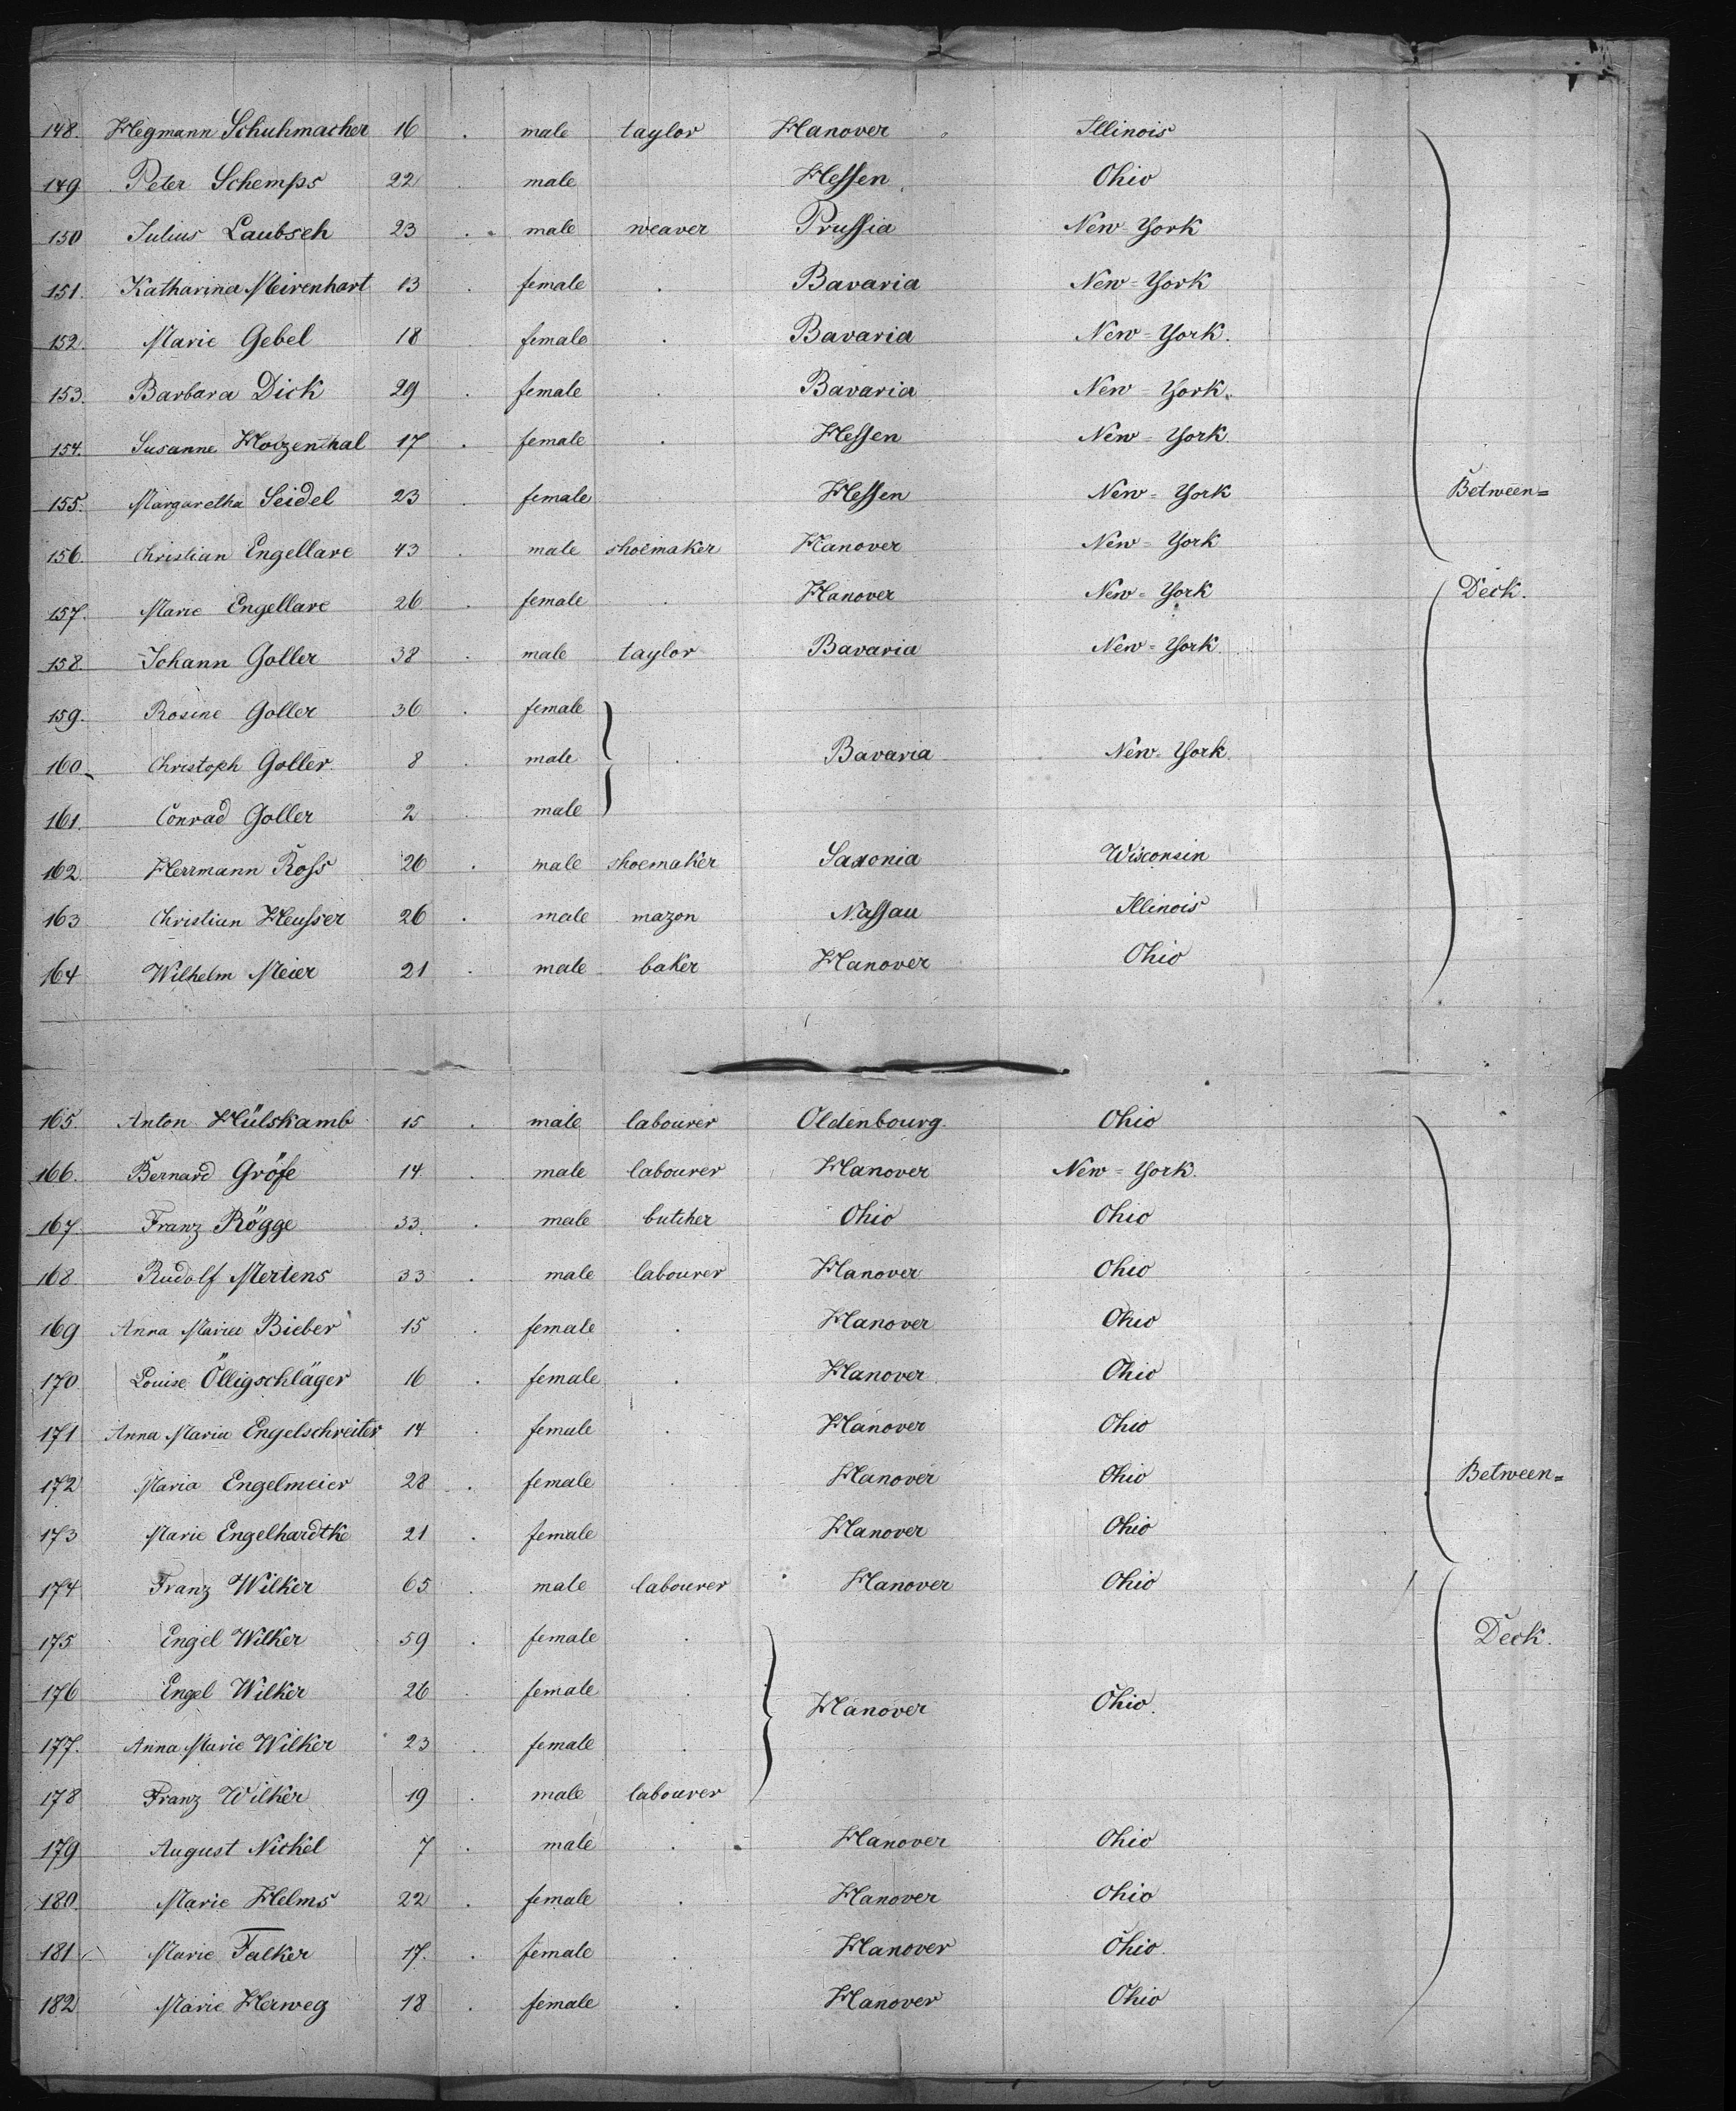 148. Hegmann Schuhmacher 16 male taylor Hanover Illinois
149 Peter Schemps 22 male Hessen Ohio
150 Julius Laubsch 23 male weaver Prussia New York
151. Katharina Meirenhart 13 female Bavaria New=York
152. Marie Gebel 18 female Bavaria New=York.
153. Barbara Dick 29 female Bavaria New=York.
154. Susanne Hozenthal 17 female Hessen New=York
155. Margaretha Seidel 23 female Hessen New=York Between=
156. Christian Engellare 43 male shoemaker Hanover New=York
157. Marie Engellare 26 female Hanover New=York Deck.
158. Johann Goller 38 male taylor Bavaria New=York
159. Rosine Goller 36 female
160. Christoph Goller 8 male Bavaria New=York.
161. Conrad Goller 2 male
162 Herrmann Ross 26 male shoemaker Saxonia Wisconsin
163 Christian Heusser 26 male mazon Nassau Illinois
164 Wilhelm Meier 21 male baker Hanover Ohio
165. Anton Hülskamb 15 male labourer Oldenbourg. Ohio
166. Bernard Gröfe 14 male labourer Hanover New=York.
167. Franz Rögge 33 male butcher Ohio Ohio
168. Rudolf Mertens 33 male labourer Hanover Ohio
169 Anna Maria Bieber 15 female Hanover Ohio
170 Louise Ölligschläger 16 female Hanover Ohio
171 Anna Maria Engelschreiter 14 female Hanover Ohio
172 Maria Engelmeier 28 female Hanover Ohio Between=
173 Marie Engelhardtke 21 female Hanover Ohio
174 Franz Wilker 65 male labourer Hanover Ohio
175 Engel Wilker 59 female Deck.
176 Engel Wilker 26 female Hanover Ohio.
177. Anna Marie Wilker 23 female
178 Franz Wilker 19 male labourer
179 August Nickel 7 male Hanover Ohio
180. Marie Helms 22 female Hanover Ohio
181 Marie Falker 17. female Hanover Ohio.
182 Marie Herweg 18 female Hanover Ohio